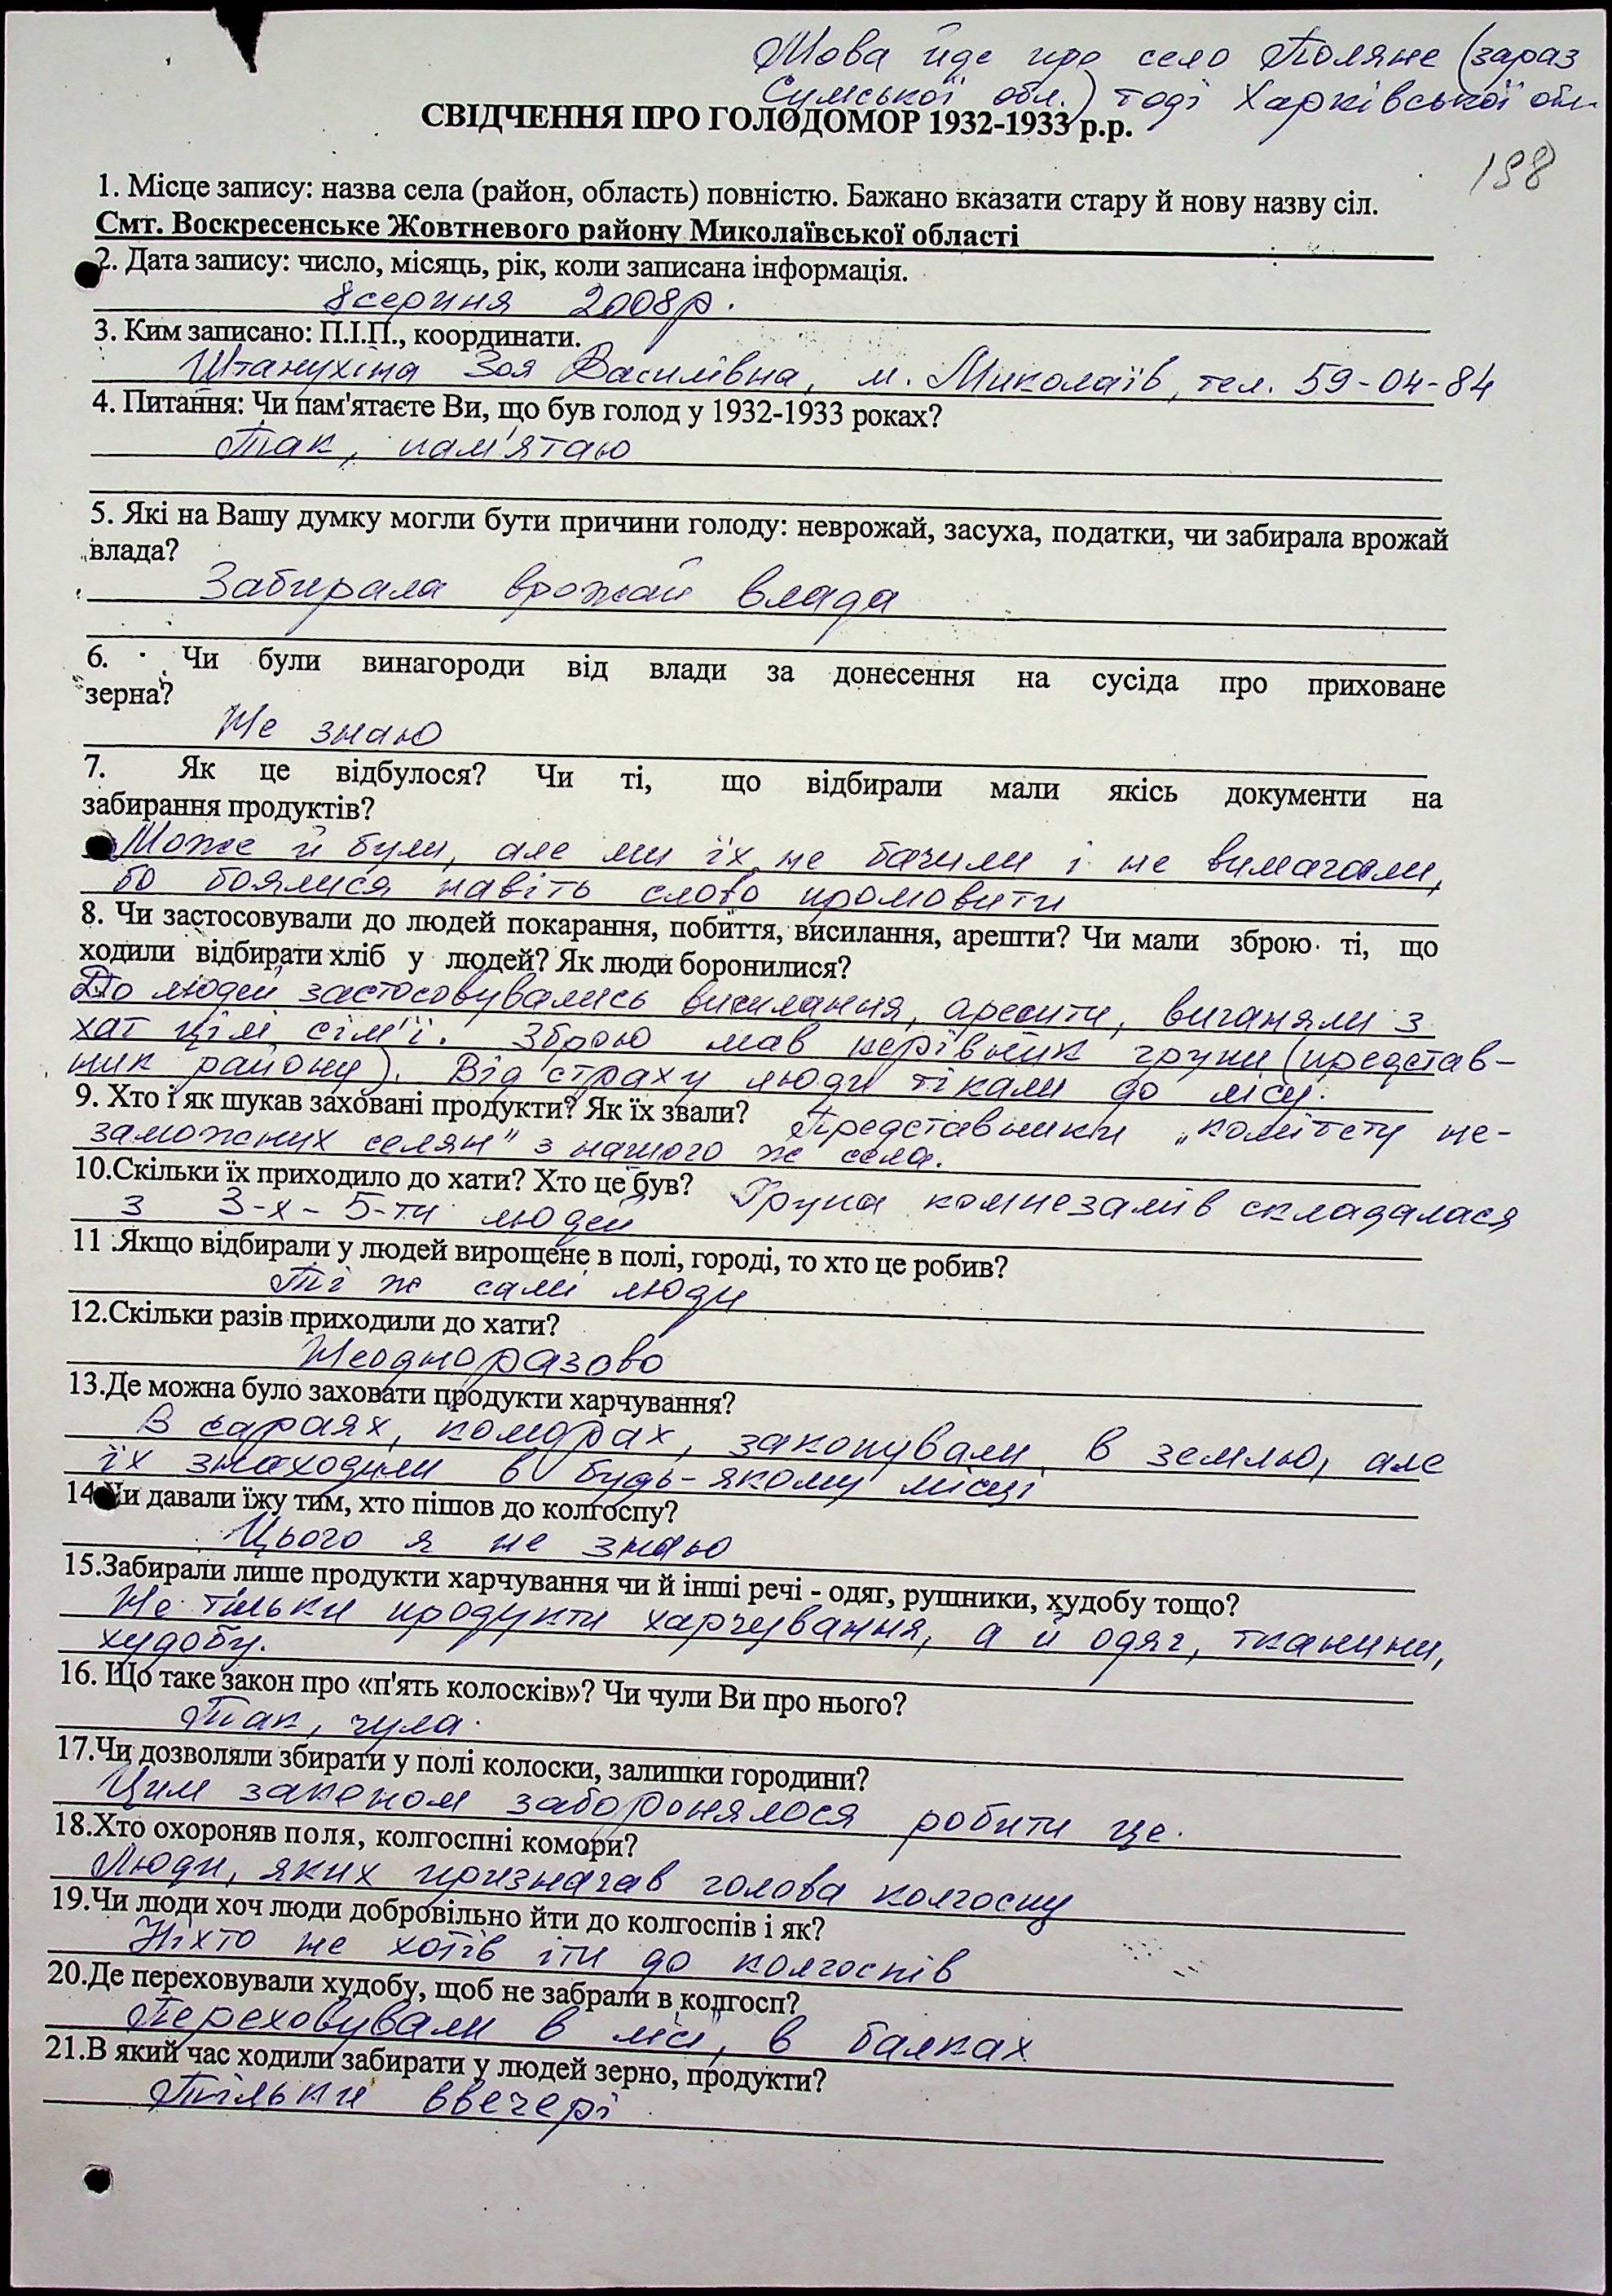 Мова йде про село Поляне (зараз
Сумської обл.) тоді Харківської обл.
СВІДЧЕННЯ ПРО ГОЛОДОМОР 1932-1933 р.р.
198
1. Місце запису: назва села (район, область) повністю. Бажано вказати стару й нову назву сіл.
Смт. Воскресенське Жовтневого району Миколаївської області
2. Дата запису: число, місяць, рік, коли записана інформація.
8 серпня 2008р.
3. Ким записано: П.І.П., координати.
Штанухіна Зоя Василівна, м. Миколаїв, тел. 59-04-84
4. Питання: Чи пам'ятаєте Ви, що був голод у 1932-1933 роках?
Так, пам'ятаю
5. Які на Вашу думку могли бути причини голоду: неврожай, засуха, податки, чи забирала врожай
влада?
Забирала врожай влада
6. Чи були винагороди від влади за донесення на сусіда про приховане
зерна?
Не знаю
7. Як це відбулося? Чи ті, що відбирали мали якісь документи на
забирання продуктів?
Може й були, але ми їх не бачили і не вимагали,
бо боялися навіть слово промовити
8. Чи застосовували до людей покарання, побиття, висилання, арешти? Чи мали зброю ті, що
ходили відбирати хліб у людей? Як люди боронилися?
До людей застосовувались висилання, арешти, виганяли з
хат цілі сім'ї. Зброю мав керівник групи (представ-
ник району). Від страху люди тікали до лісу.
9. Хто і як шукав заховані продукти? Як їх звали? Представники „комітету не-
заможних селян" з нашого ж села.
10.Скільки їх приходило до хати? Хто це був? Група комнезамів складалася
з 3-х - 5-ти людей
11 .Якщо відбирали у людей вирощене в полі, городі, то хто це робив?
Ті ж самі люди
12.Скільки разів приходили до хати?
Неодноразово
13.Де можна було заховати продукти харчування?
В сараях, коморах, закопували в землю, але
їх знаходили в будь-якому місці
14.Чи давали їжу тим, хто пішов до колгоспу?
Цього я не знаю
15.Забирали лише продукти харчування чи й інші речі - одяг, рушники, худобу тощо?
Не тільки продукти харчування, а й одяг, тканини,
худобу.
16. Що таке закон про «п'ять колосків»? Чи чули Ви про нього?
Так, чула.
17.Чи дозволяли збирати у полі колоски, залишки городини?
Цим законом заборонялося робити це.
18.Хто охороняв поля, колгоспні комори?
Люди, яких призначав голова колгоспу
19.Чи люди хоч люди добровільно йти до колгоспів і як?
Ніхто не хотів іти до колгоспів
20.Де переховували худобу, щоб не забрали в колгосп?
Переховували в лісі, в балках
21.В який час ходили забирати у людей зерно, продукти?
Тільки ввечері